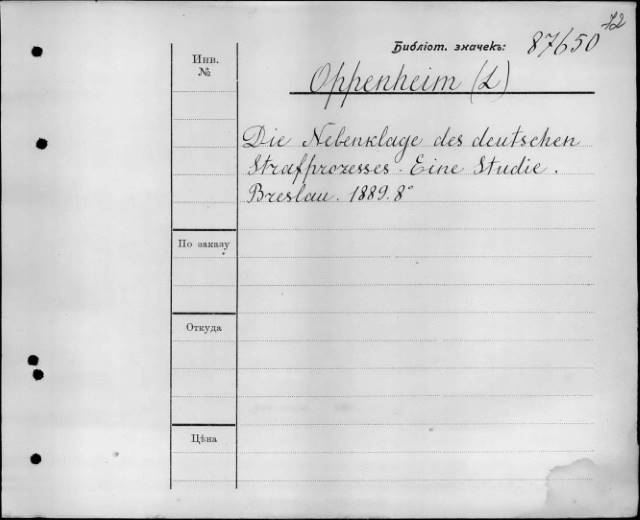 72
Библіот. значекъ: 87650
Инв.
№
Oppenheim (L)
Die Nebenklage des deutschen
Strafprozesses. Eine Studie.
Breslau. 1889. 8°
По заказу
Откуда
Цѣна